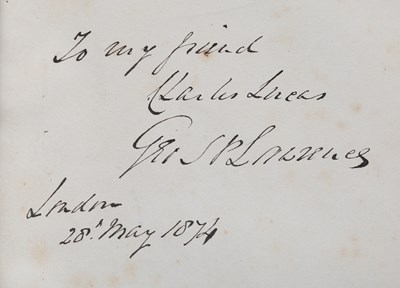 To my friend
Charles Lucas
Geo S P Lawrence
London
28th May 1874